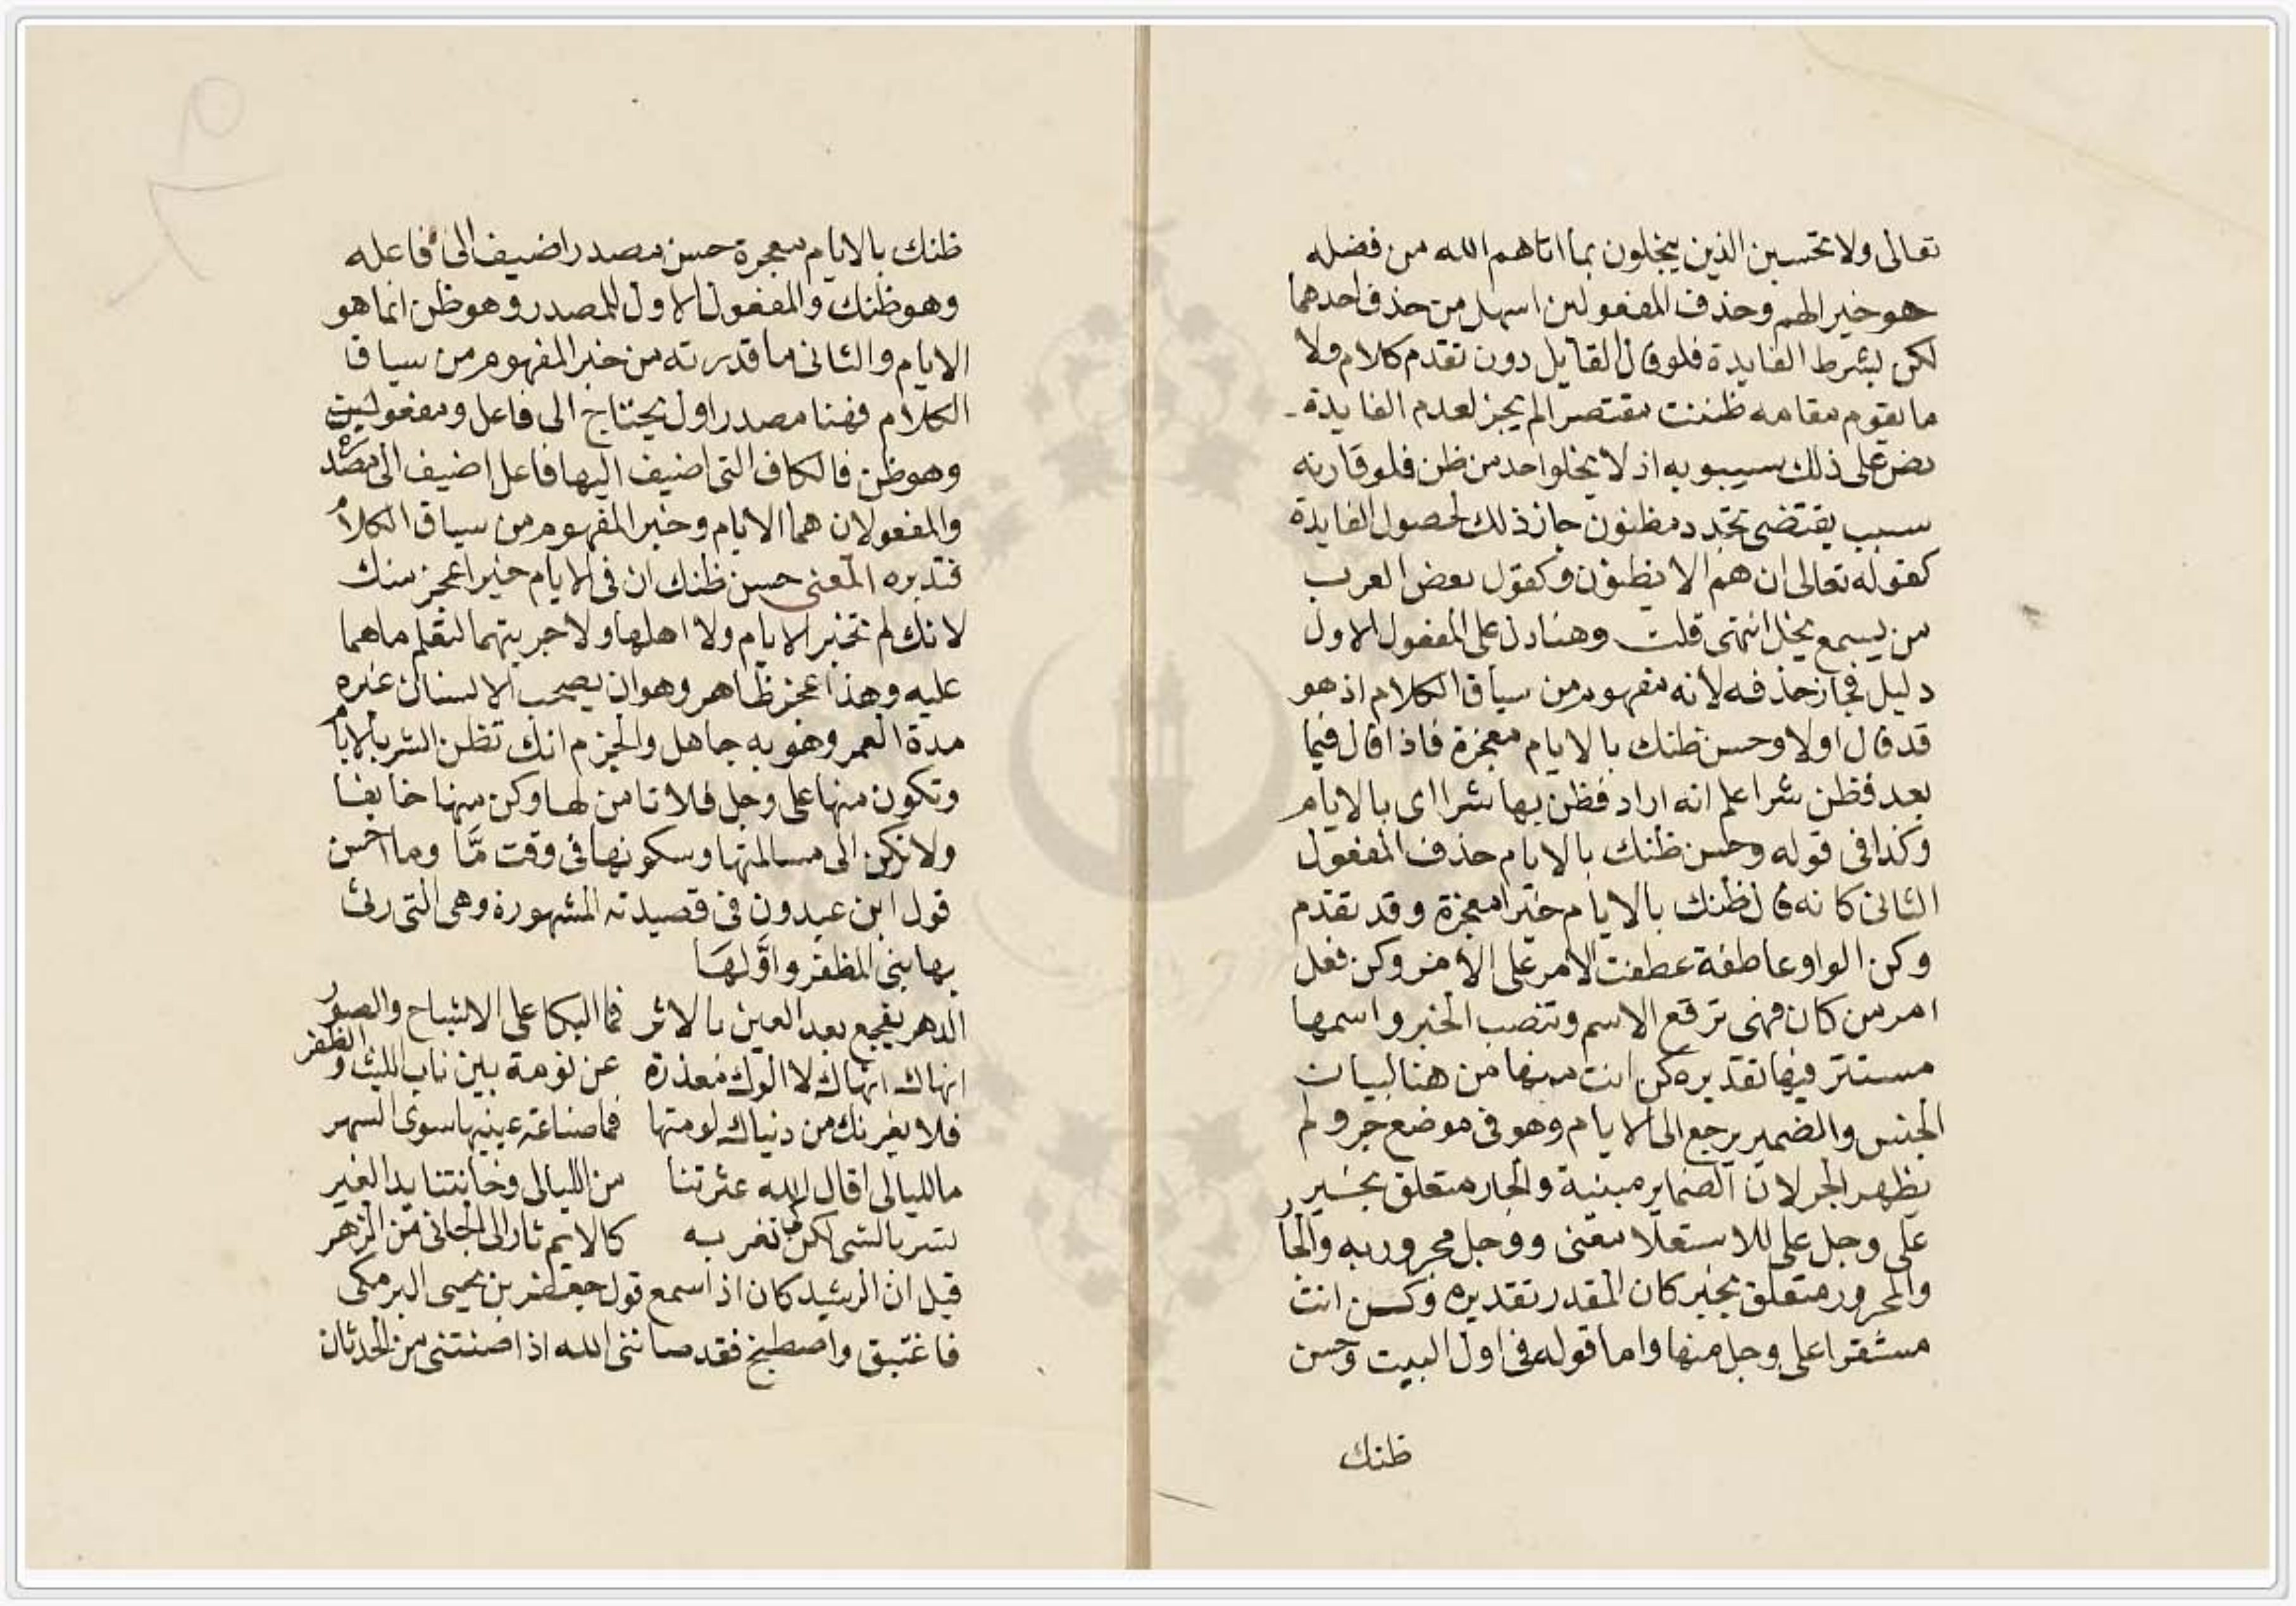 تعالى ولا تحسبن الذين يبخلون بما اتاهم الله من فضله
هو خيرا لهم وحذف المفعولين اسهل من حذف احدهما
لكن بشرط الفايدة فلو قال القايل دون تقدم كلام ولا
ما يقوم مقامه ظننت مقتصرا لم يجز لعدم الفايدة
نص على ذلك سيبويه اذ لا يخلو احد من ظن فلو قارنه
سبب يقتضى تجدد مظنون جاز ذلك لحصول الفايدة
كقوله تعالى ان هم الا يظنون وكقول بعض العرب
من يسمع يخل انتهى قلت وهنا دل على المفعول الاول
دليل فجاز حذفه لأنه مفهوم من سياق الكلام اذ هو
قد قال اولا وحسن ظنك بالايام معجزة فاذا قال فيما
بعد فظن شرا علم انه اراد فظن بها شرا اى بالايام
وكذا فى قوله وحسن ظنك بالايام حذف المفعول
الثانى كانه قال ظنك بالايام خيرا معجزة وقد تقدم
وكن الواو عاطفة عطفت الامر على الأمر وكن فعل
امر من كان فهى ترفع الاسم وتنصب الخبر واسمها
مستتر فيها تقديره كن انت منها من هنا لبيان
الجنس والضمير يرجع الى الايام وهو فى موضع جر ولم
يظهر الجر لان الضماير مبنية والجار متعلق بخبر
على وجل على للاستعلا معنى ووجل مجرور به والجار
والمجرور متعلق بخبر كان المقدر تقديره وكن انت
مستقرا على وجل منها واما قوله فى اول البيت وحسن
ظنك
ظنك بالايام معجزة حسن مصدر اضيف الى فاعله
وهو ظنك والمفعول الاول للمصدر وهو ظن انما هو
الايام والثانى ما قدرته من خبر المفهوم من سياق
الكلام فهنا مصدر اول يحتاج الى فاعل ومفعولين
وهو ظن فالكاف التى اضيف اليها فاعل اضيف الى مصدره
والمفعولان هما الايام وخبر المفهوم من سياق الكلام
فتدبره المعنى حسن ظنك ان فى الايام خيرا عجز منك
لانك لم تختبر الايام ولا اهلها ولا جربتهما لتعلم ما هما
عليه وهذا عجز ظاهر وهو ان يصحب الانسان غيره
مدة العمر وهو به جاهل والحزم انك تظن الشر بالايام
وتكون منها على وجل فلا تامن لها وكن منها خايفا
ولا تركن الى مسالمتها وسكونها فى وقت مّا وما احسن
قول ابن عبدون فى قصيدته المشهورة وهى التى رثى
بها بنى المظفر واوّلهَا
الدهر يفجع بعد العين بالاثر فما البكا على الاشباح والصور
انهاك انهاك لا الوك معذرة عن نومة بين ناب الليث والظفر
فلا يغرنك من دنياك نومتها فما صناعة عينيها سوى السهر
ما لليالى اقال الله عثرتنا من الليالى وخانتنا يد الغير
تسر بالشى لكن كى تغر به كالايم ثار الى الجانى من الزهر
قيل ان الرشيد كان اذا سمع قول جعفر بن يحيى البرمكى
فاغتبق واصطبح فقد صاننى الله اذا صنتنى من الحدثان